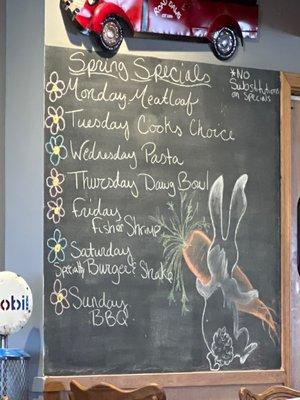 ROAD DAWG
Spring Specials
*No
Substitutions
on Specials
Monday Meatloaf
Tuesday Cooks Choice
Wednesday Pasta
Thursday Dawg Bowl
Friday
Fish or Shrimp
Saturday
Specialty Burger & Shake
Sunday
BBQ
obil